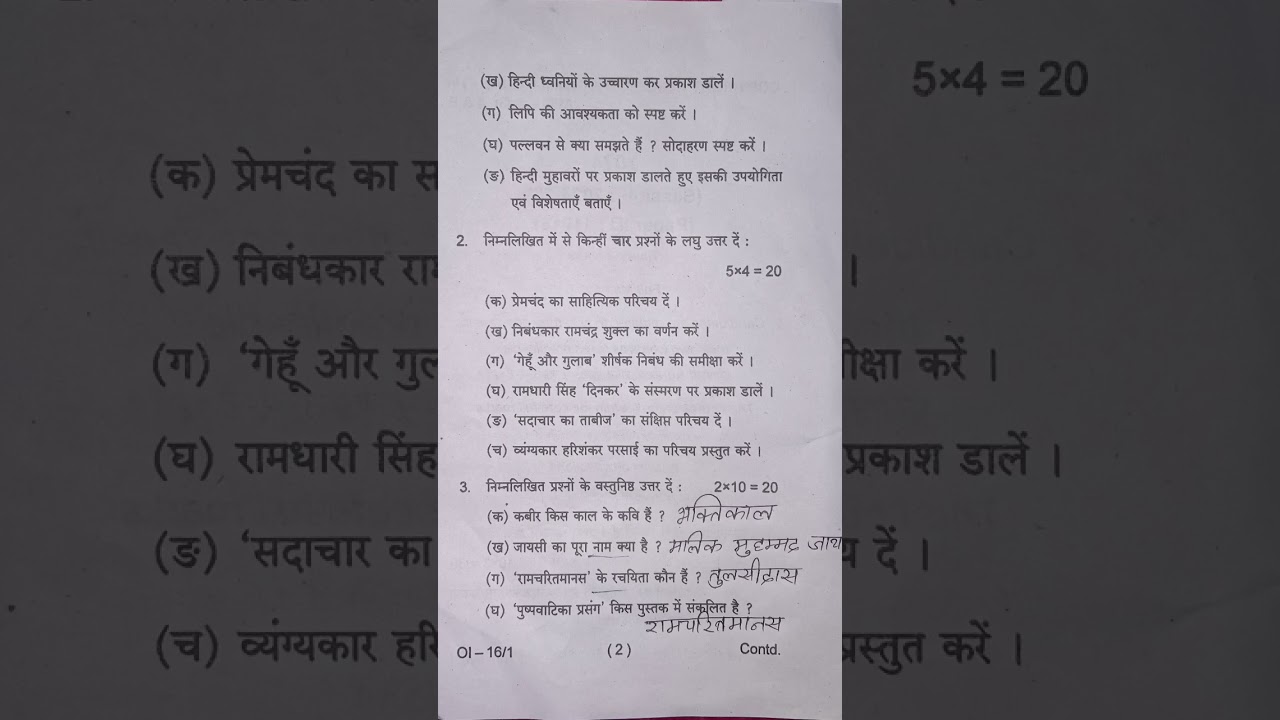 (ख) हिन्दी ध्वनियों के उच्चारण कर प्रकाश डालें ।
(ग) लिपि की आवश्यकता को स्पष्ट करें ।
(घ) पल्लवन से क्या समझते हैं ? सोदाहरण स्पष्ट करें ।
(ङ) हिन्दी मुहावरों पर प्रकाश डालते हुए इसकी उपयोगिता
एवं विशेषताएँ बताएँ ।
2. निम्नलिखित में से किन्हीं चार प्रश्नों के लघु उत्तर दें :
5×4 = 20
(क) प्रेमचंद का साहित्यिक परिचय दें ।
(ख) निबंधकार रामचंद्र शुक्ल का वर्णन करें ।
(ग) ‘गेहूँ और गुलाब’ शीर्षक निबंध की समीक्षा करें ।
(घ) रामधारी सिंह ‘दिनकर’ के संस्मरण पर प्रकाश डालें ।
(ङ) ‘सदाचार का ताबीज’ का संक्षिप्त परिचय दें ।
(च) व्यंग्यकार हरिशंकर परसाई का परिचय प्रस्तुत करें ।
3. निम्नलिखित प्रश्नों के वस्तुनिष्ठ उत्तर दें : 2×10 = 20
(क) कबीर किस काल के कवि हैं ? भक्तिकाल
(ख) जायसी का पूरा नाम क्या है ? मलिक मुहम्मद जाय
(ग) ‘रामचरितमानस’ के रचयिता कौन हैं ? तुलसीदास
(घ) ‘पुष्पवाटिका प्रसंग’ किस पुस्तक में संकलित है ?
रामचरितमानस
OI – 16/1 (2) Contd.
5×4 = 20
(क) प्रेमचंद का स
(ख) निबंधकार रा ।
(ग) ‘गेहूँ और गुल क्षा करें ।
(घ) रामधारी सिंह प्रकाश डालें ।
(ङ) ‘सदाचार का य दें ।
(च) व्यंग्यकार हरि प्रस्तुत करें ।